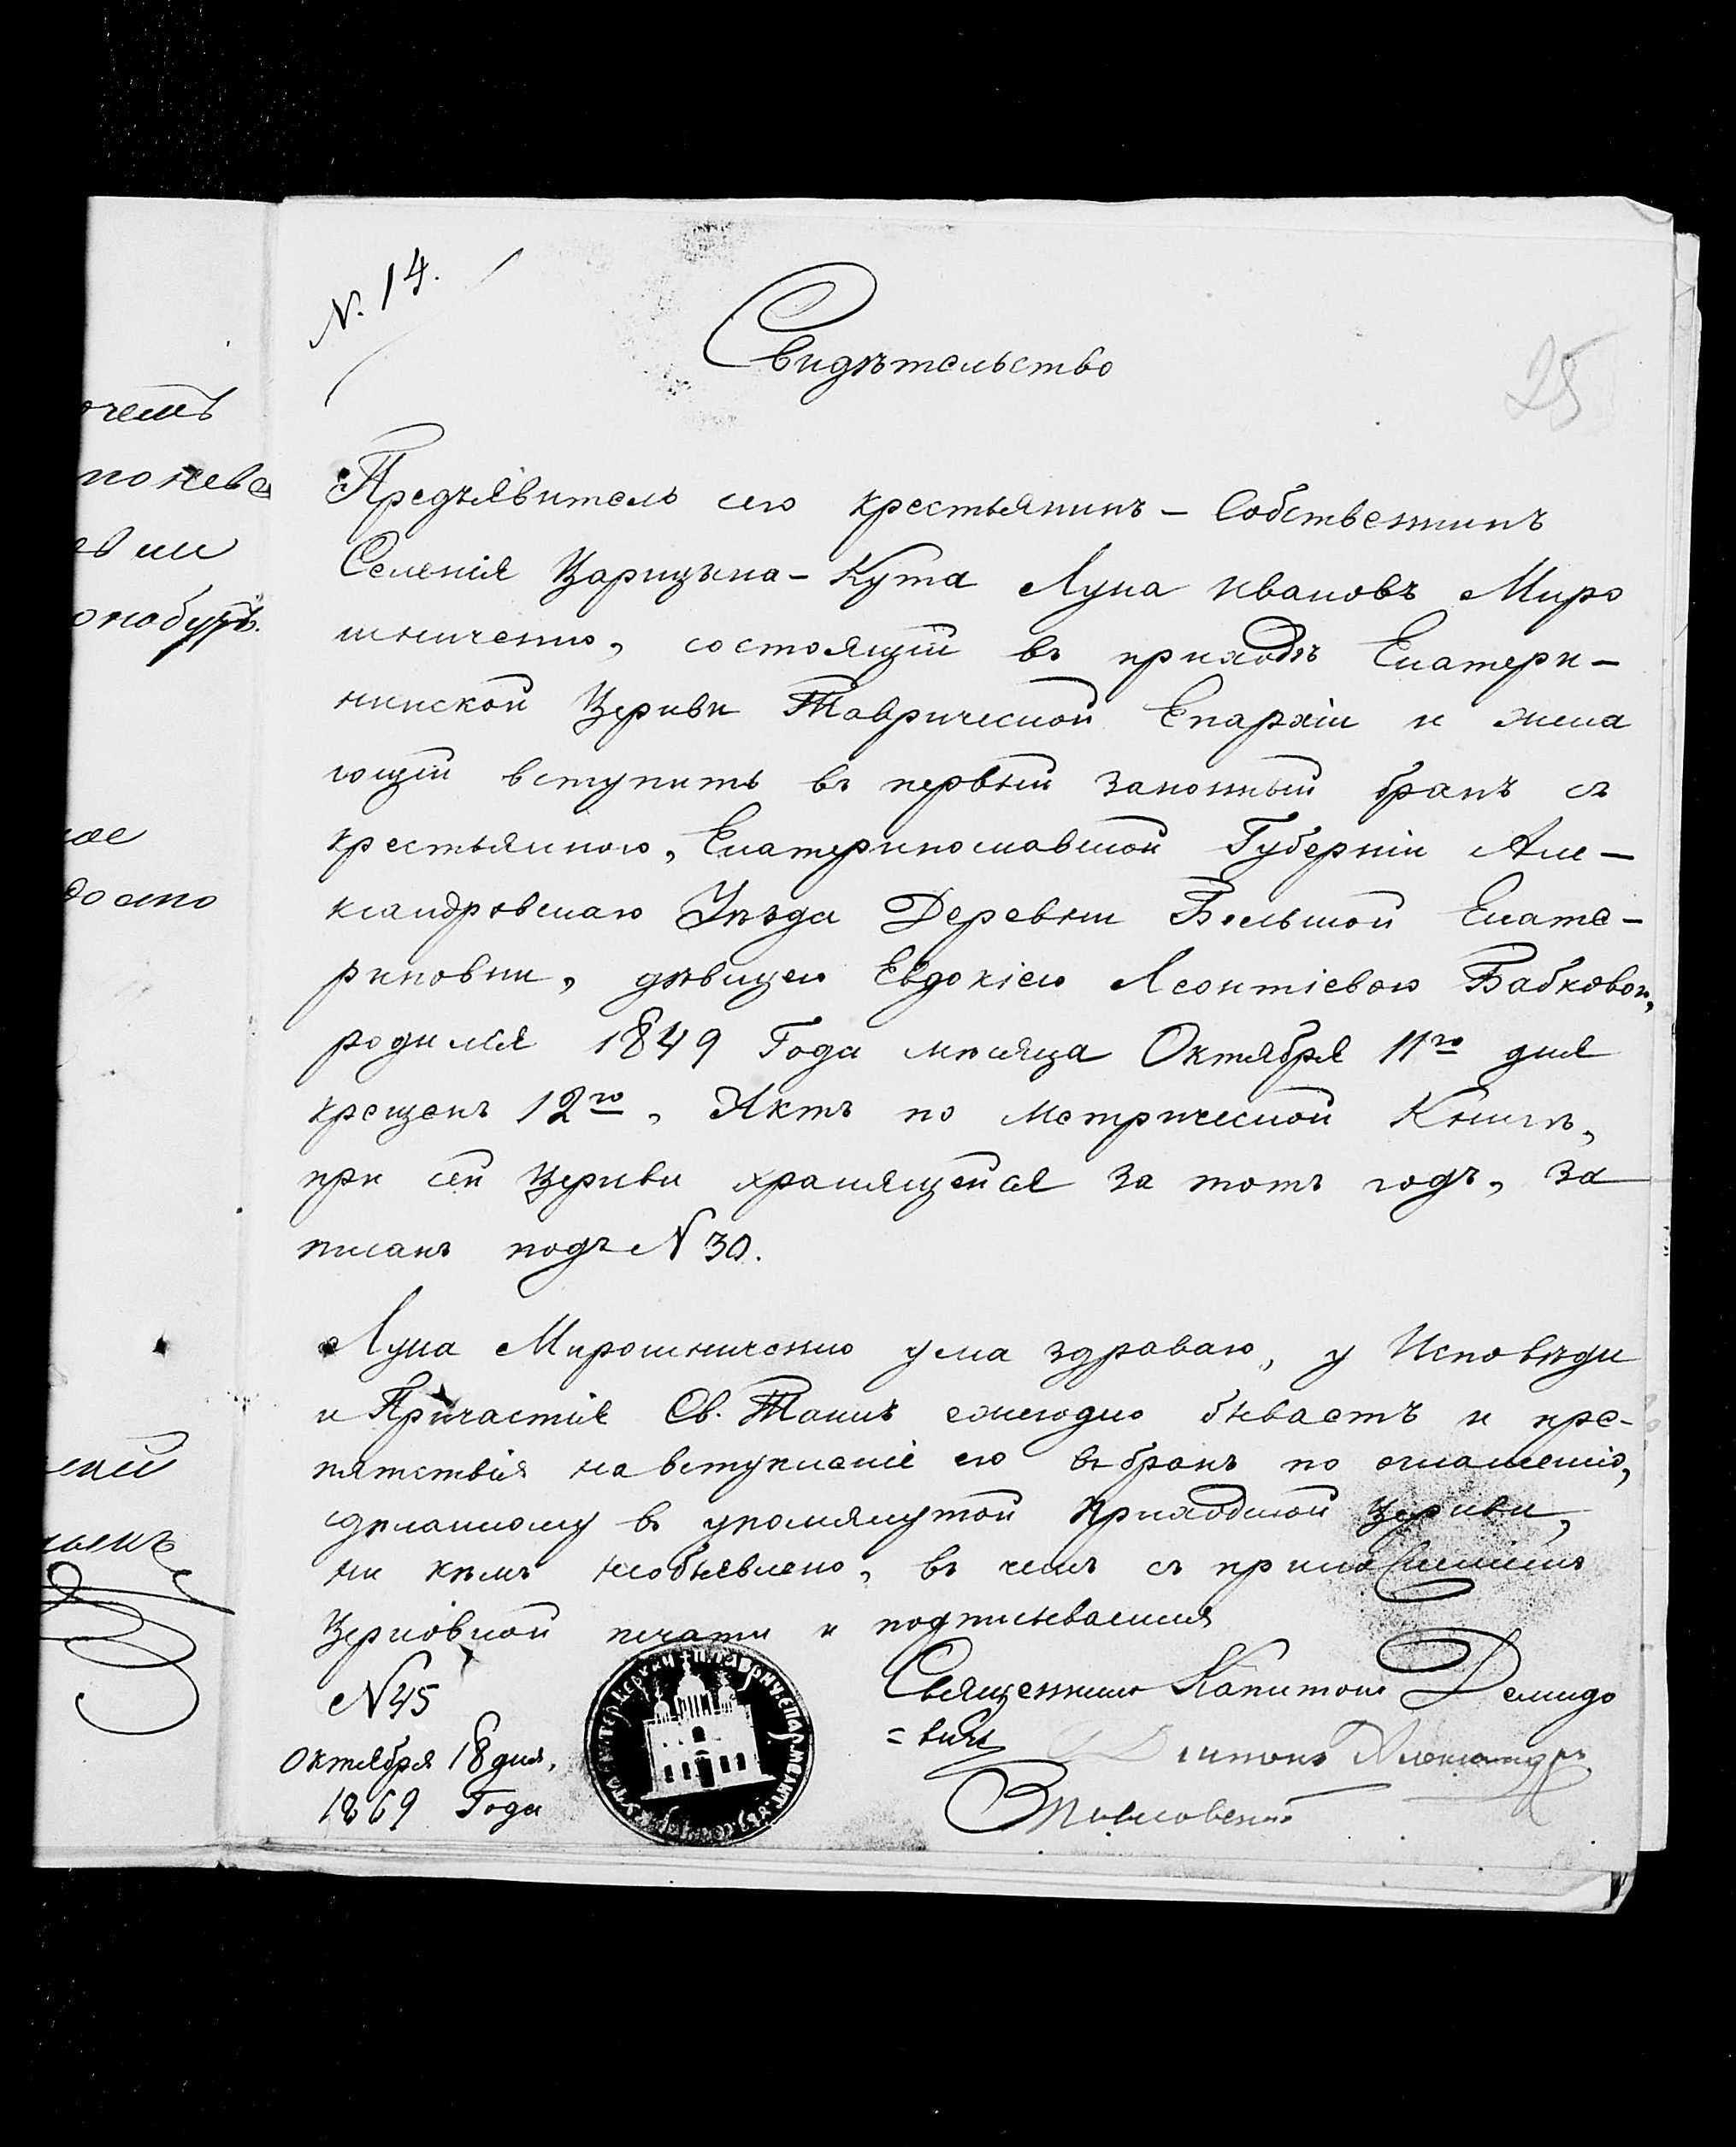 очемъ
по нева
ев ии
онобуръ.
ое
до сто
N. 14.
25
Свидѣтельство
Предъявитель сего крестьянинъ - Собственникъ
Селенія Царицына - Кута Лука Ивановъ Миро
шниченко, состоящій въ приходѣ Екатери-
нинской Церкви Таврической Епархіи и жела
ющій вступить въ первый законный бракъ съ
крестьянкою, Екатеринославской Губерніи Але-
ксандровскаго Уѣзда Деревни Большой Екате-
риновки, дѣвицею Евдокіею Леонтіевою Бабковой,
родился 1849 Года мѣсяца Октября 11го дня
крещенъ 12го, Актъ по метрической Книгѣ,
при сей Церкви хранящейся за тотъ годъ, за
писанъ подъ N 30.
Лука Мирошниченко ума здраваго, у Исповѣди
и Причастія Св. Таинъ ежегодно бываетъ и пре-
пятствія на вступленіе его въ бракъ по оглашенію,
сдѣланному въ упомянутой Приходской Церкви,
ни кѣмъ необъявлено, въ чемъ съ приложеніемъ
Церковной печати и подписываемся
N 45
Священникъ Капитонъ Демидо
=вичъ
Октября 18 дня,
1869 Года